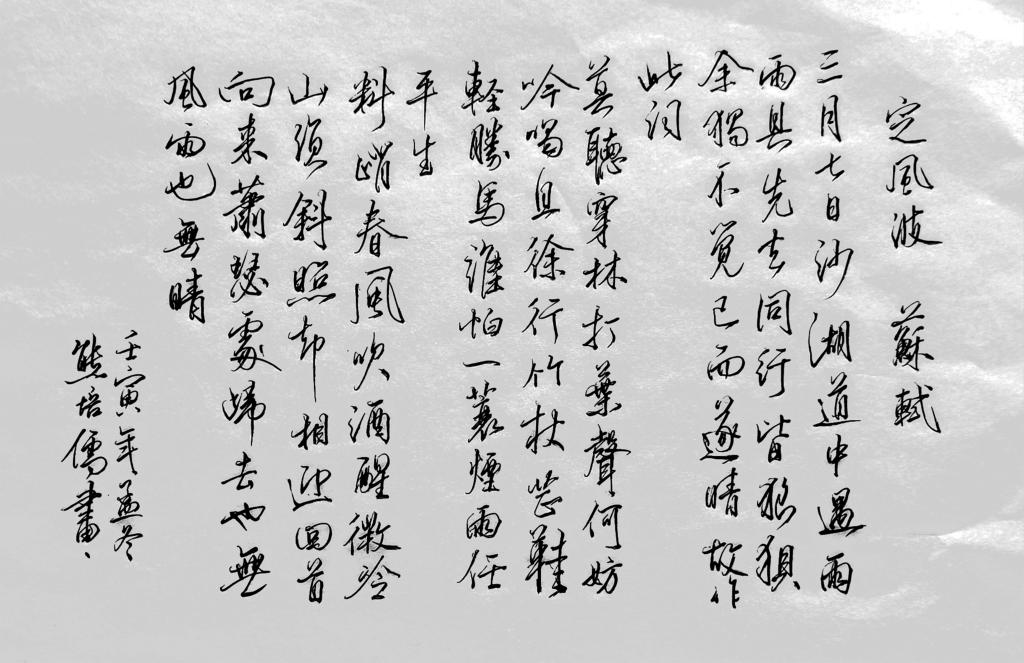 定風波　蘇軾
三月七日沙湖道中遇雨
雨具先去同行皆狼狽
余獨不覺已而遂晴故作
此詞
莫聽穿林打葉聲何妨
吟嘯且徐行竹杖芒鞋
輕勝馬誰怕一蓑煙雨任
平生
料峭春風吹酒醒微冷
山頭斜照却相迎回首
向来蕭瑟處歸去也無
風雨也無晴
壬寅年孟冬
熊培儒書